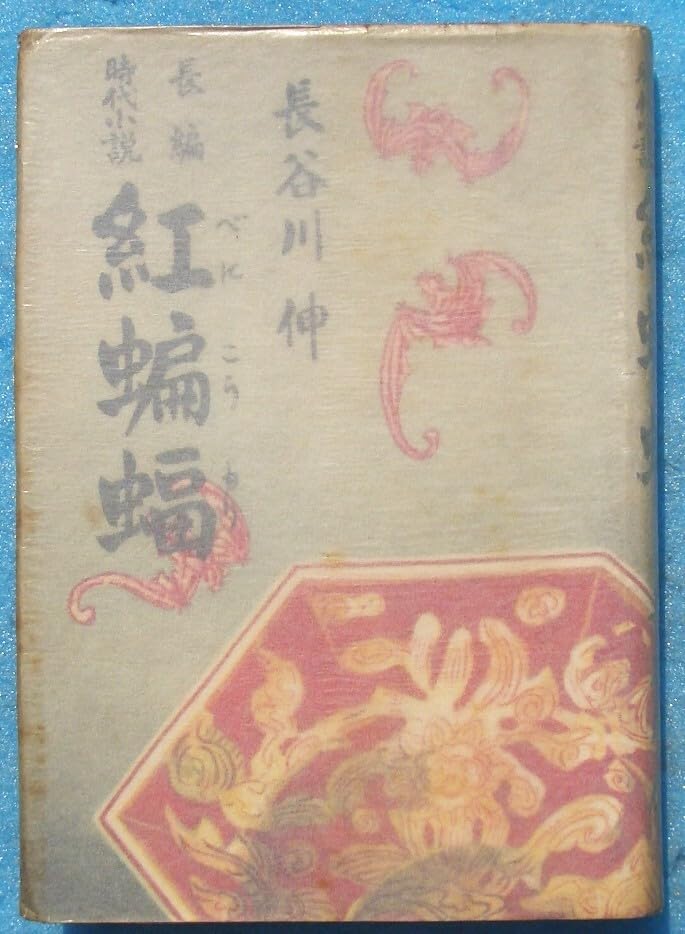 長谷川伸
長編
時代小説
紅蝙蝠
べにこうもり